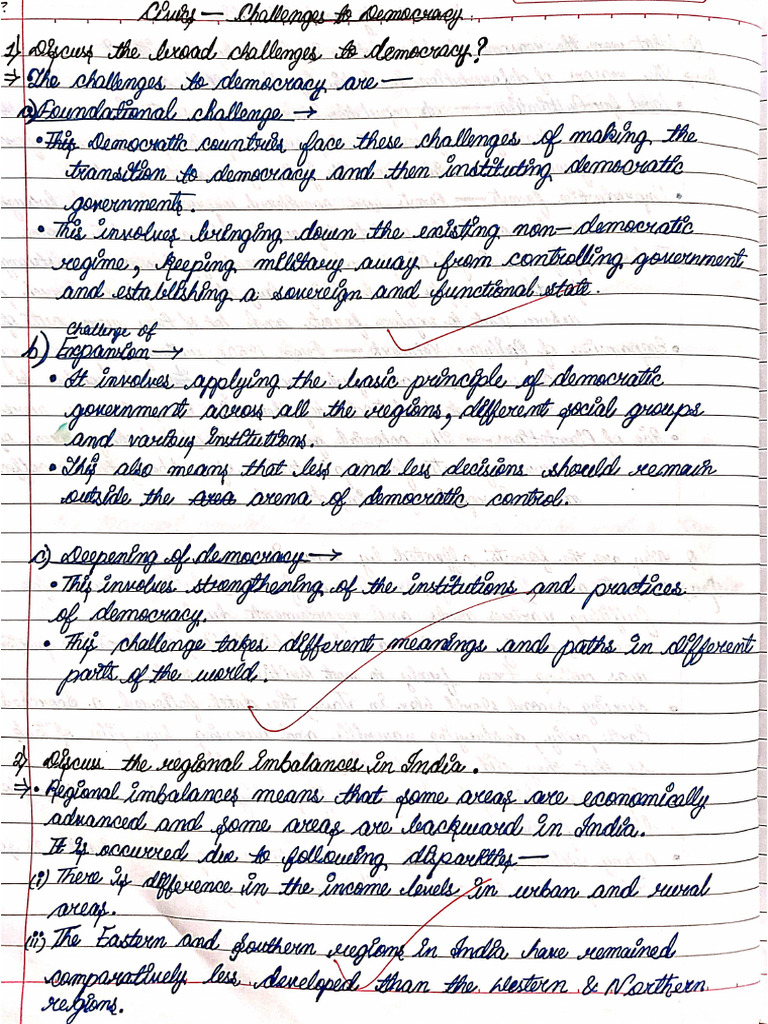 Civics — Challenges to Democracy.
1) Discuss the broad challenges to democracy?
⇒ The challenges to democracy are —
a) Foundational challenge →
• This Democratic countries face these challenges of making the
transition to democracy and then instituting democratic
governments.
• This involves bringing down the existing non-democratic
regime, keeping military away from controlling government
and establishing a sovereign and functional state.
Challenge of
b) Expansion →
• It involves applying the basic principle of democratic
government across all the regions, different social groups
and various institutions.
• This also means that less and less decisions should remain
outside the area arena of democratic control.
c) Deepening of democracy →
• This involves strengthening of the institutions and practices
of democracy.
• This challenge takes different meanings and paths in different
parts of the world.
2) Discuss the regional imbalances in India.
⇒ • Regional imbalances means that some areas are economically
advanced and some areas are backward in India.
It is occurred due to following disparities —
(i) There is difference in the income levels in urban and rural
areas.
(ii) The Eastern and Southern regions in India have remained
comparatively less developed than the Western & Northern
regions.